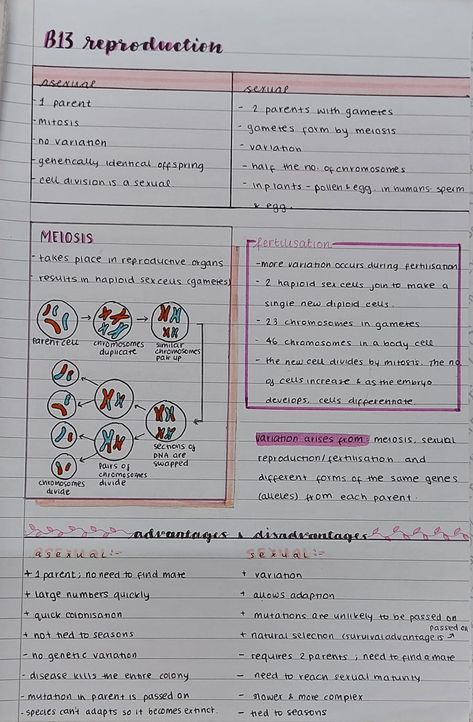 B13 reproduction
asexual
- 1 parent
- mitosis
- no variation
- genetically identical offspring
- cell division is a sexual
sexual
- 2 parents with gametes
- gametes form by meiosis
- variation
- half the no. of chromosomes
- in plants - pollen & egg. in humans- sperm
& egg.
MEIOSIS
- takes place in reproductive organs
- results in haploid sex cells (gametes)
parent cell
chromosomes
duplicate
similar
chromosomes
pair up
sections of
DNA are
swapped
pairs of
chromosomes
divide
chromosomes
divide
fertilisation
- more variation occurs during fertilisation
- 2 haploid sex cells join to make a
single new diploid cell.
- 23 chromosomes in gametes
- 46 chromosomes in a body cell
- the new cell divides by mitosis. The no
of cells increase & as the embryo
develops, cells differennate.
variation arises from: meiosis, sexual
reproduction/fertilisation and
different forms of the same genes
(alleles) from each parent.
advantages & disadvantages
asexual:-
+ 1 parent; no need to find mate
+ large numbers quickly
+ quick colonisation
+ not tied to seasons
- no genetic variation
- disease kills the entire colony
- mutation in parent is passed on
- species can't adapts so it becomes extinct.
sexual:-
+ variation
+ allows adaption
+ mutations are unlikely to be passed on
+ natural selection (survival advantage is passed on
- requires 2 parents; need to find a mate
- need to reach sexual maturity
- slower & more complex
- tied to seasons